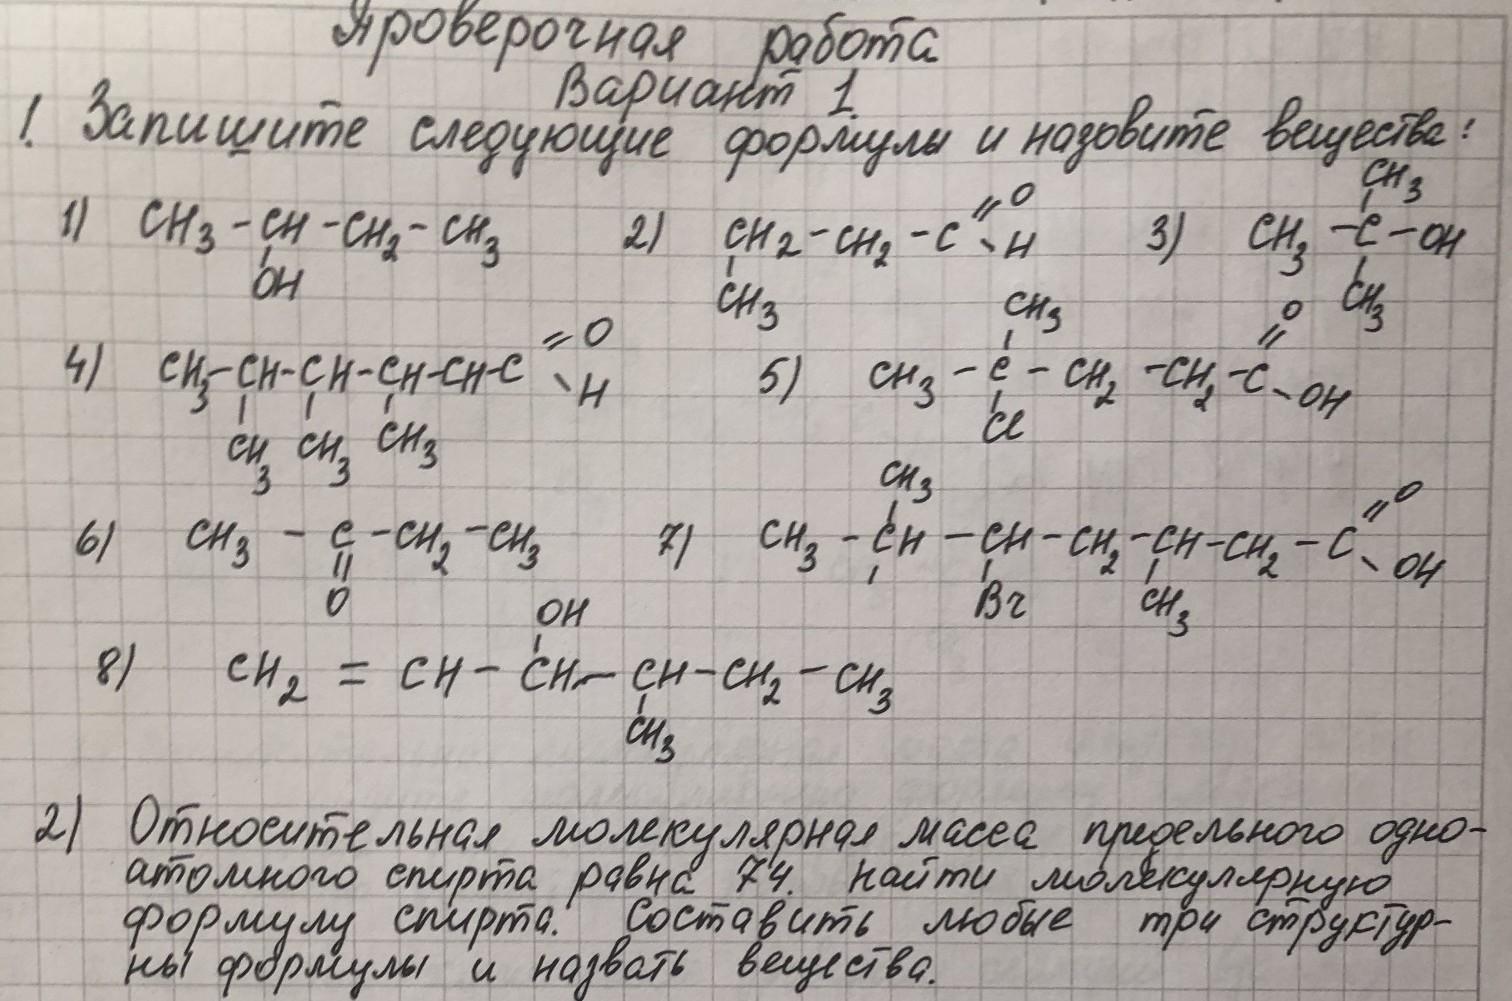 Проверочная работа
Вариант 1
1. Запишите следующие формулы и назовите вещества:
1) CH3 - CH - CH2 - CH3
OH
2) CH2 - CH2 - C = O
- H
CH3
3) CH3 - C - OH
CH3
CH3
4) CH3 - CH - CH - CH - CH - C = O
- H
CH3 CH3 CH3
5) CH3 - C - CH2 - CH2 - C = O
- OH
CH3
Cl
6) CH3 - C - CH2 - CH3
=
O
7) CH3 - CH - CH - CH2 - CH - CH2 - C = O
- OH
CH3
Br CH3
8) CH2 = CH - CH - CH - CH2 - CH3
OH
CH3
2) Относительная молекулярная масса предельного одно-
атомного спирта равна 74. Найти молекулярную
формулу спирта. Составить любые три структур-
ны формулы и назвать вещества.